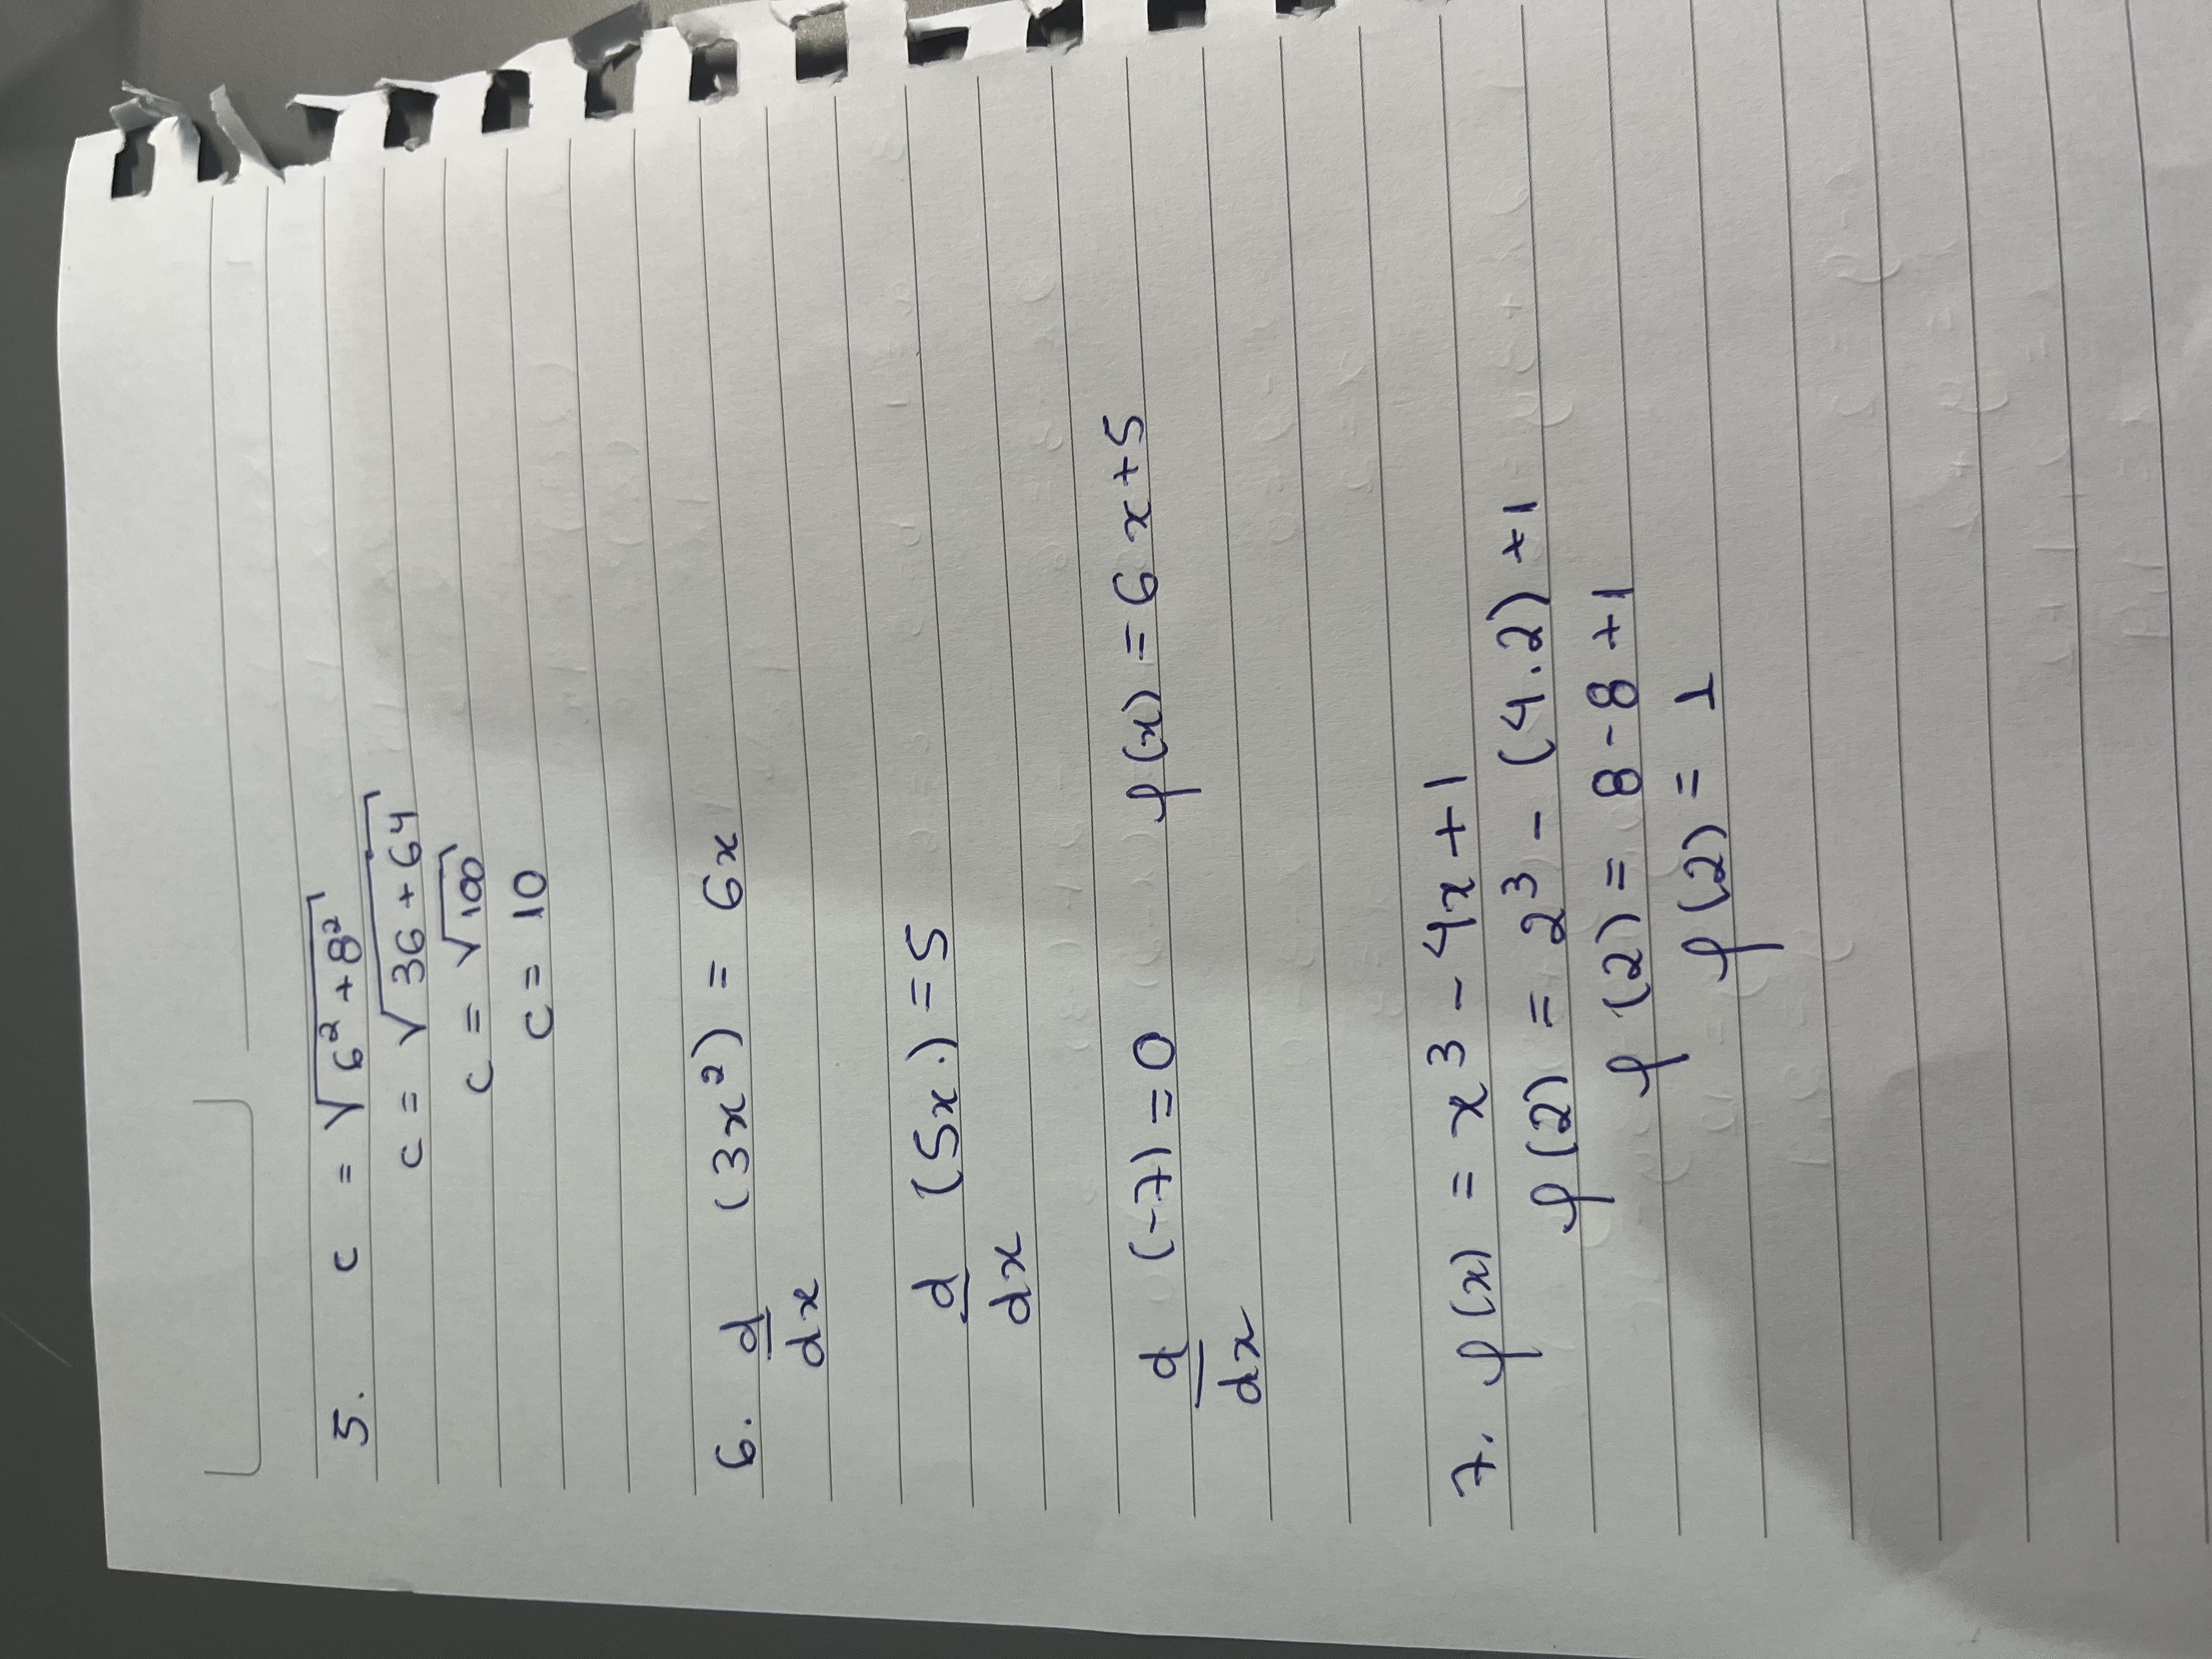 5. c = √6² + 8²
c = √36 + 64
c = √100
c = 10
6. d/dx (3x²) = 6x
d/dx (5x.) = 5
d/dx (-7) = 0 f(x) = 6x+5
7. f(x) = x³ - 4x + 1
f(2) = 2³ - (4.2) + 1
f(2) = 8 - 8 + 1
f(2) = 1